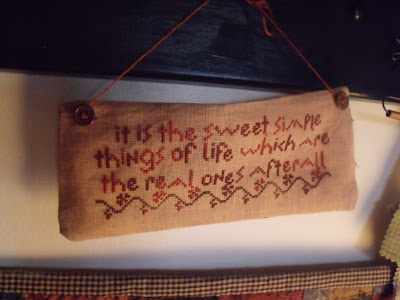 it is the sweet simple
things of life which are
the real ones afterall